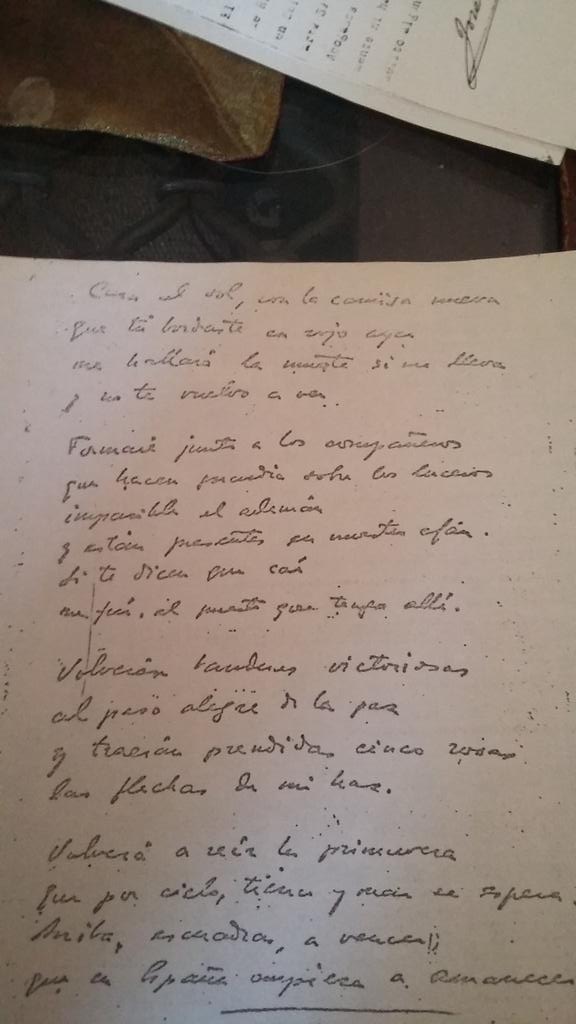 Cara al sol, con la camisa nueva
que tú bordaste en rojo ayer
me hallará la muerte si me lleva
y no te vuelvo a ver.
Formaré junto a los compañeros
que hacen guardia sobre los luceros
impasible el ademán
y están presentes en nuestro afán.
Si te dicen que caí
me fuí, al puesto que tengo allí.
Volverán banderas victoriosas
al paso alegre de la paz
y traerán prendidas cinco rosas
las flechas de mi haz.
Volverá a reir la primavera
que por cielo, tierra y mar se espera.
Arriba, escuadras, a vencer!!
que en España empieza a amanecer